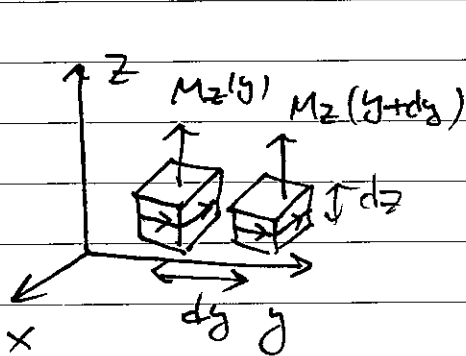 z
Mz(y)
Mz(y+dy)
dz
dy
y
x